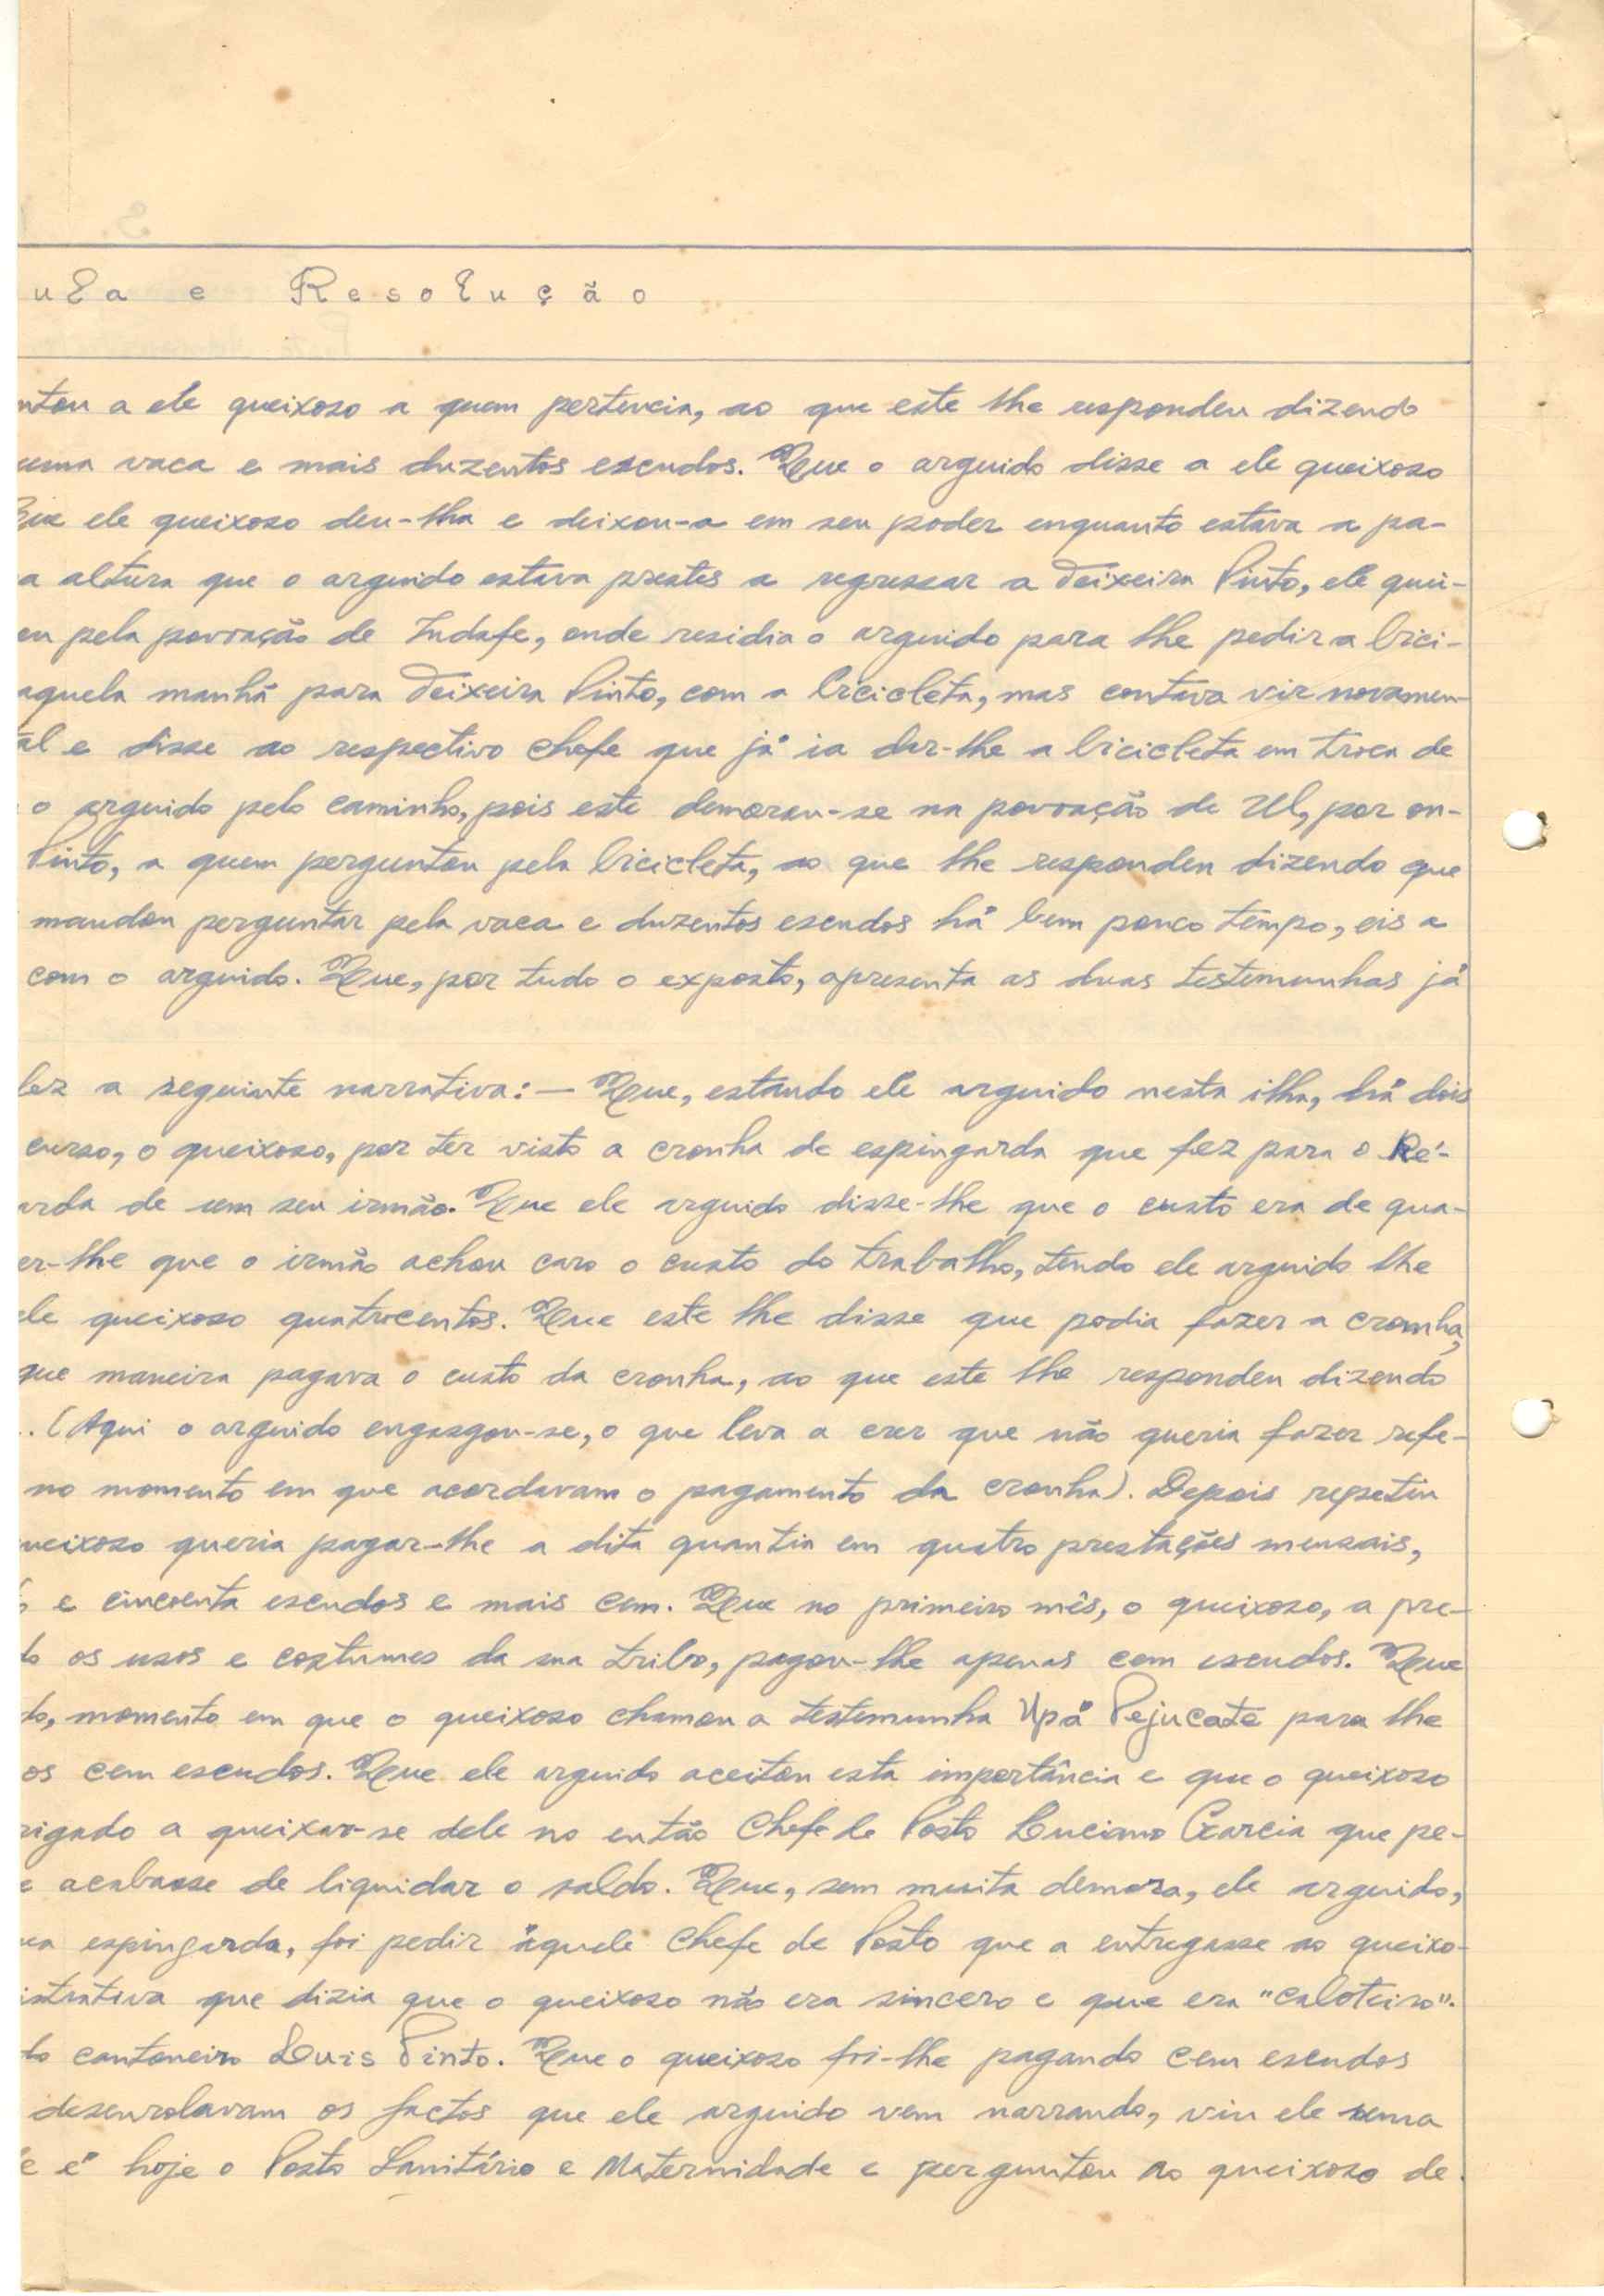 ula e Resolução
ntou a ele queixoso a quem pertencia, ao que este lhe respondeu dizendo
uma vaca e mais duzentos escudos. Que o arguido disse a ele queixoso
Que ele queixoso deu-lha e deixou-a em seu poder enquanto estava a pa-
a altura que o arguido estava prestes a regressar a Teixeira Pinto, ele quei-
ou pela povoação de Indafe, onde residia o arguido para lhe pedir a bici-
aquela manhã para Teixeira Pinto, com a bicicleta, mas contava vir novamen-
al e disse ao respectivo chefe que já ia dar-lhe a bicicleta em troca de
o arguido pelo caminho, pois este demorou-se na povoação de Ul, por on-
Pinto, a quem perguntou pela bicicleta, ao que lhe respondeu dizendo que
mandou perguntar pela vaca e duzentos escudos há bem pouco tempo, eis a
com o arguido. Que, por tudo o exposto, apresenta as duas testemunhas já
fez a seguinte narrativa: — Que, estando ele arguido nesta ilha, há dois
curso, o queixoso, por ter visto a cronha de espingarda que fez para o Ré-
arda de um seu irmão. Que ele arguido disse-lhe que o custo era de qua-
er-lhe que o irmão achou caro o custo do trabalho, tendo ele arguido lhe
ele queixoso quatrocentos. Que este lhe disse que podia fazer a cronha,
que maneira pagava o custo da cronha, ao que este lhe respondeu dizendo
. (Aqui o arguido engasgou-se, o que leva a crer que não queria fazer refe-
no momento em que acordavam o pagamento da cronha). Depois repetiu
ueixoso queria pagar-lhe a dita quantia em quatro prestações mensais,
e cincoenta escudos e mais cem. Que no primeiro mês, o queixoso, a pre-
do os usos e costumes da sua tribo, pagou-lhe apenas cem escudos. Que
do, momento em que o queixoso chamou a testemunha Upá Pejucate para lhe
os cem escudos. Que ele arguido aceitou esta importância e que o queixoso
rigado a queixar-se dele no então Chefe de Posto Luciano Garcia que pe-
e acabasse de liquidar o saldo. Que, sem muita demora, ele arguido,
ua espingarda, foi pedir àquele Chefe de Posto que a entregasse ao queixo-
istrativa que dizia que o queixoso não era sincero e que era "caloteiro".
do cantoneiro Luis Pinto. Que o queixoso foi-lhe pagando cem escudos
desenrolavam os factos que ele arguido vem narrando, viu ele uma
e é hoje o Posto Sanitário e Maternidade e perguntou ao queixoso de